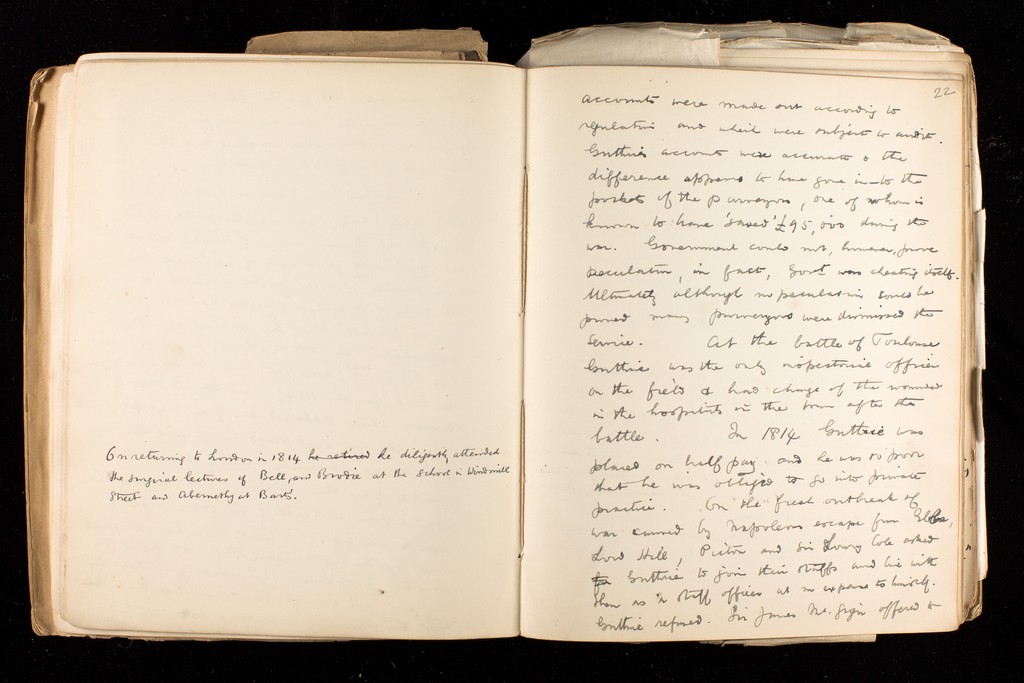 On returning to London in 1814 he retired he diligently attended
the surgical lectures of Bell, and Brodie at the School in Windmill
Street and Abernethy at Barts.
22
accounts were made out according to
regulation and which were subject to audit.
Guthries accounts were accurate & the
difference appears to have gone in-to the
pockets of the purveyors, one of whom is
known to have 'saved' £95,000 during the
war. Government could not, however, prove
peculation, in fact, Govt was cheating itself.
Ultimately although no peculation could be
proved many purveyors were dismissed the
Service. At the battle of Toulouse
Guthrie was the only inspectorial officer
on the field & had charge of the wounded
in the hospitals in the town after the
battle. In 1814 Guthrie was
placed on half pay. and he was so poor
that he was obliged to go into private
practice. On the fresh outbreak of
war caused by Napoleons escape from Elba,
Lord Hill, Picton and Sir Lowry Cole asked
Guthrie to join their staffs and live with
them as a staff officer at no expense to himself.
Guthrie refused. Sir James Mc.Grigor offered to